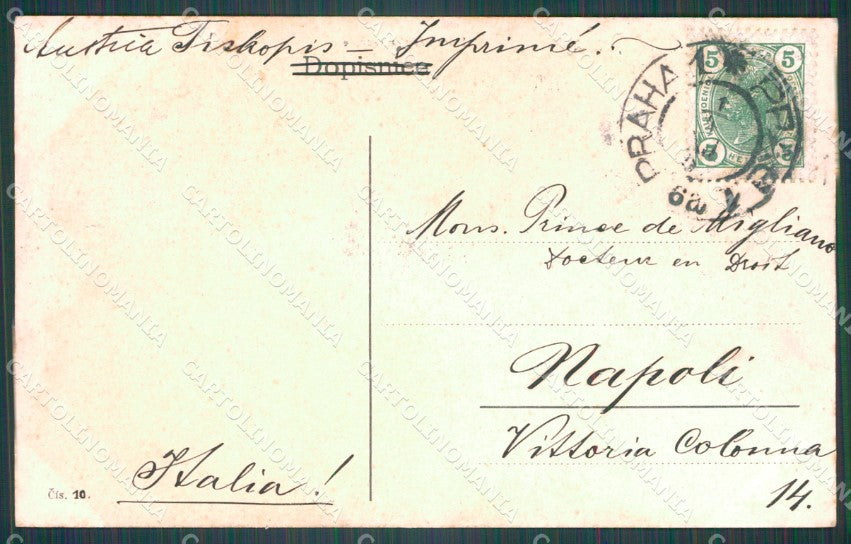 Austria Tiskopis – Imprimé.
Dopisnice
5 5
PRAHA PRAG
Mons. Prince de Migliano
Docteur en Droit
Napoli
Vittoria Colonna
14.
Italia!
Čís. 10.
CARTOLINOMANIA